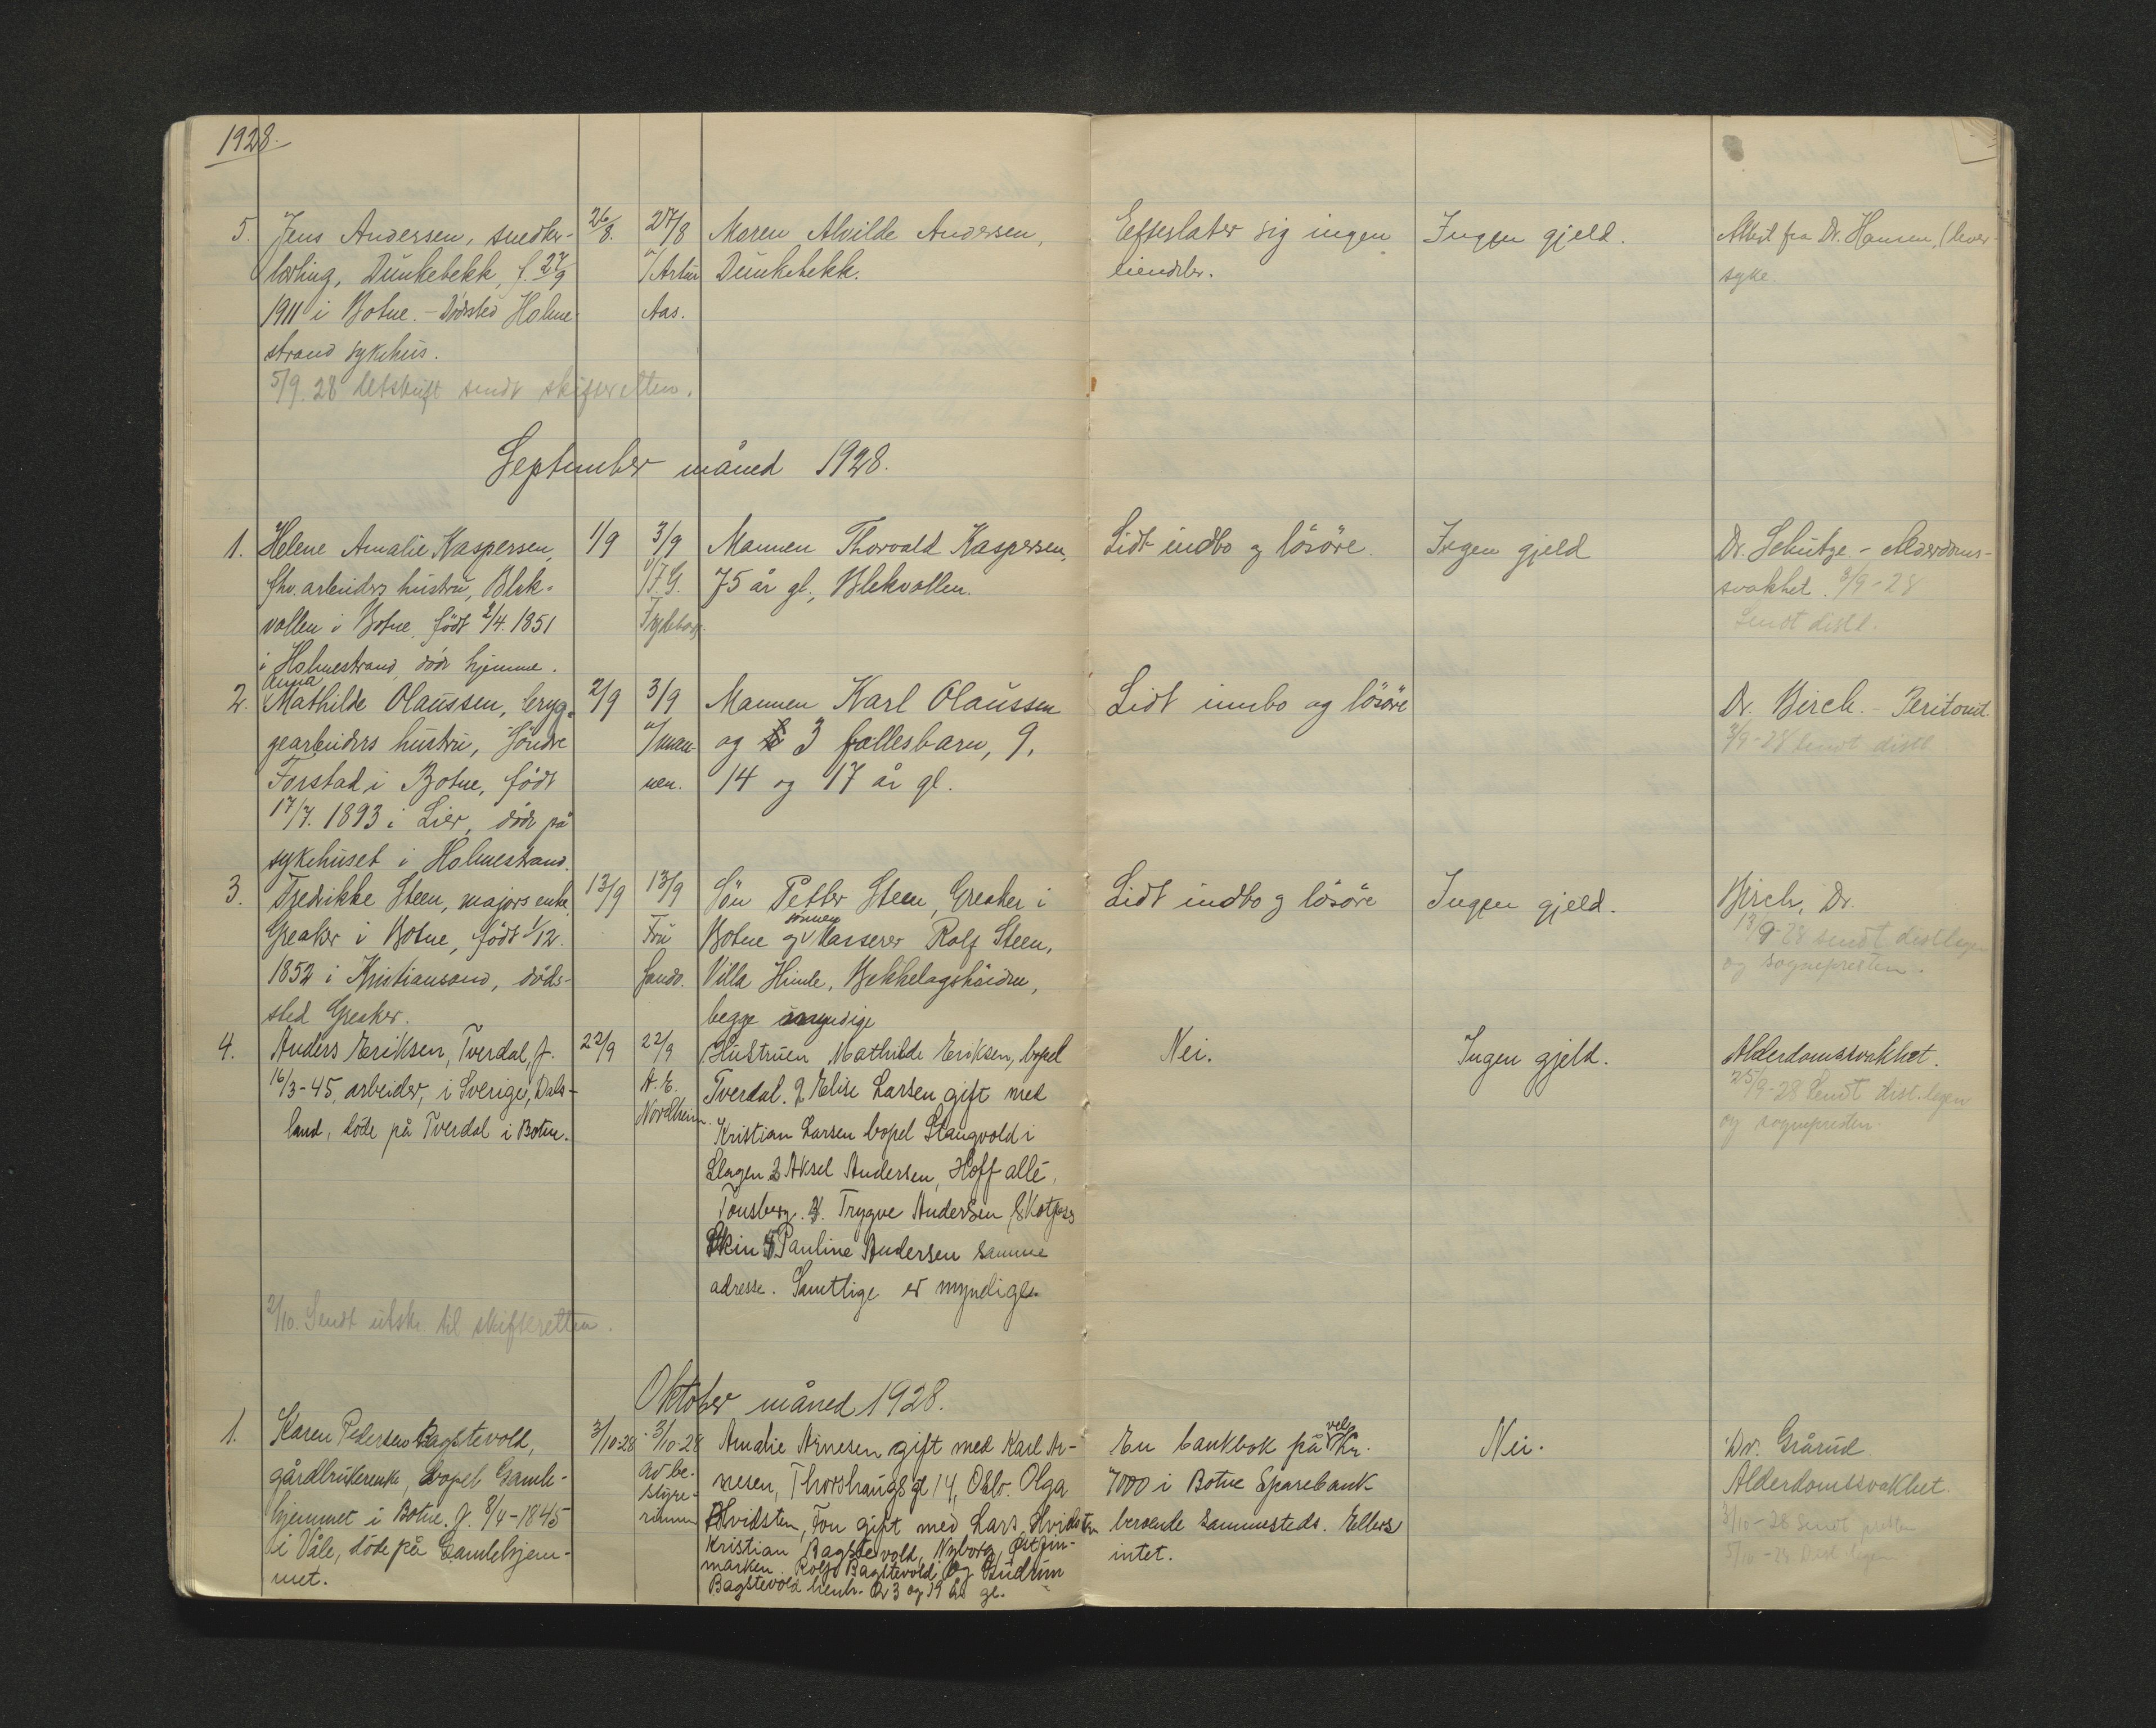 1928.
5. Jens Andersen, snedker-
lærling, Dunkebekk, f. 27/9
1911 i Botne. - Dödssted Holme-
strand sykehus.
5/9. 28 Utskrift sendt skifteretten.
26/8.
27/8
v/Artur
Aas.
Maren Alvilde Andersen,
Dunkebekk.
Efterlater sig ingen
eiendeler.
Ingen gjeld.
Attest fra Dr. Hansen, (lever-
syke
September måned 1928.
1. Helene Amalie Kaspersen,
fhv. arbeiders hustru, Blek-
vollen i Botne, födt 2/4. 1851
i Holmestrand, döde hjemme.
1/9
3/9
v/T. G.
Frydeborg.
Mannen Thorvald Kaspersen,
75 år gl., Blekvollen.
Lidt indbo og lösöre.
Ingen gjeld
Dr. Schutze. - Alderdoms-
svakhet. 3/9-28
Sendt distl.
Anna
2. Mathilde Olaussen, bryg-
gearbeiders hustru, Söndre
Forstad i Botne, födt
17/7. 1893 i Lier, döde på
sykehuset i Holmestrand.
2/9
3/9
v/man-
nen.
Mannen Karl Olaussen
og 3 fellesbarn, 9,
14 og 17 år gl.
Lidt innbo og lösöre
Dr. Birch. - Peritonit.
3/9-28 sendt distl
3. Fredrikke Steen, majors enke,
Greaker i Botne, födt 1/12.
1852 i Kristiansand, döds-
sted Greaker.
13/9
13/9
Fru
Sando.
Sön Petter Steen, Greaker i
sönnen
Botne og Kasserer Rolf Steen,
Villa Himle, Bekkelagshöiden,
begge myndige
Lidt indbo og lösöre
Ingen gjeld.
Birch, Dr.
13/9-28 sendt distlegen
og sognepresten.
4. Anders Eriksen, Tverdal, f.
16/3-45, arbeider, i Sverige, Dals-
land, döde på Tverdal i Botne.
22/9
22/9
A. E.
Nordheim.
Hustruen Mathilde Eriksen, bopel
Tverdal. 2 Elise Larsen gift med
Kristian Larsen bopel Stangvold i
Slagen 3 Aksel Andersen, Hoff allé,
Tønsberg. 4. Trygve Andersen Skotfoss
Skin 5 Pauline Andersen samme
adresse. Samtlige er myndige.
Nei.
Ingen gjeld.
Alderdomssvakhet.
25/9-28 Sendt dist.legen
og sognepresten.
2/10. Sendt utskr. til skifteretten.
Oktober måned 1928.
1. Karen Pedersen Bagstevold,
gårdbrukerenke, bopel Gamle-
hjemmet i Botne. f. 8/4-1845
i Våle, döde på Gamlehjem-
met.
3/10-28
3/10-28
av be-
styre-
rinnen
Amalie Arnesen gift med Karl Ar-
nesen, Thorshaugs gt 14, Oslo. Olga
Hvidsten, Fon gift med Lars Hvidsten
Kristian Bagstevold, Nyborg, Östfin-
marken. Rolf Bagstevold og Gudrun
Bagstevold henh. 23 og 19 år gl.
vel
En bankbok på kr.
7000 i Botne Sparebank
beroende sammesteds. Ellers
intet.
Nei.
Dr. Grårud
Alderdomssvakhet.
3/10-28 Sendt presten
5/10-28 Dist.legen